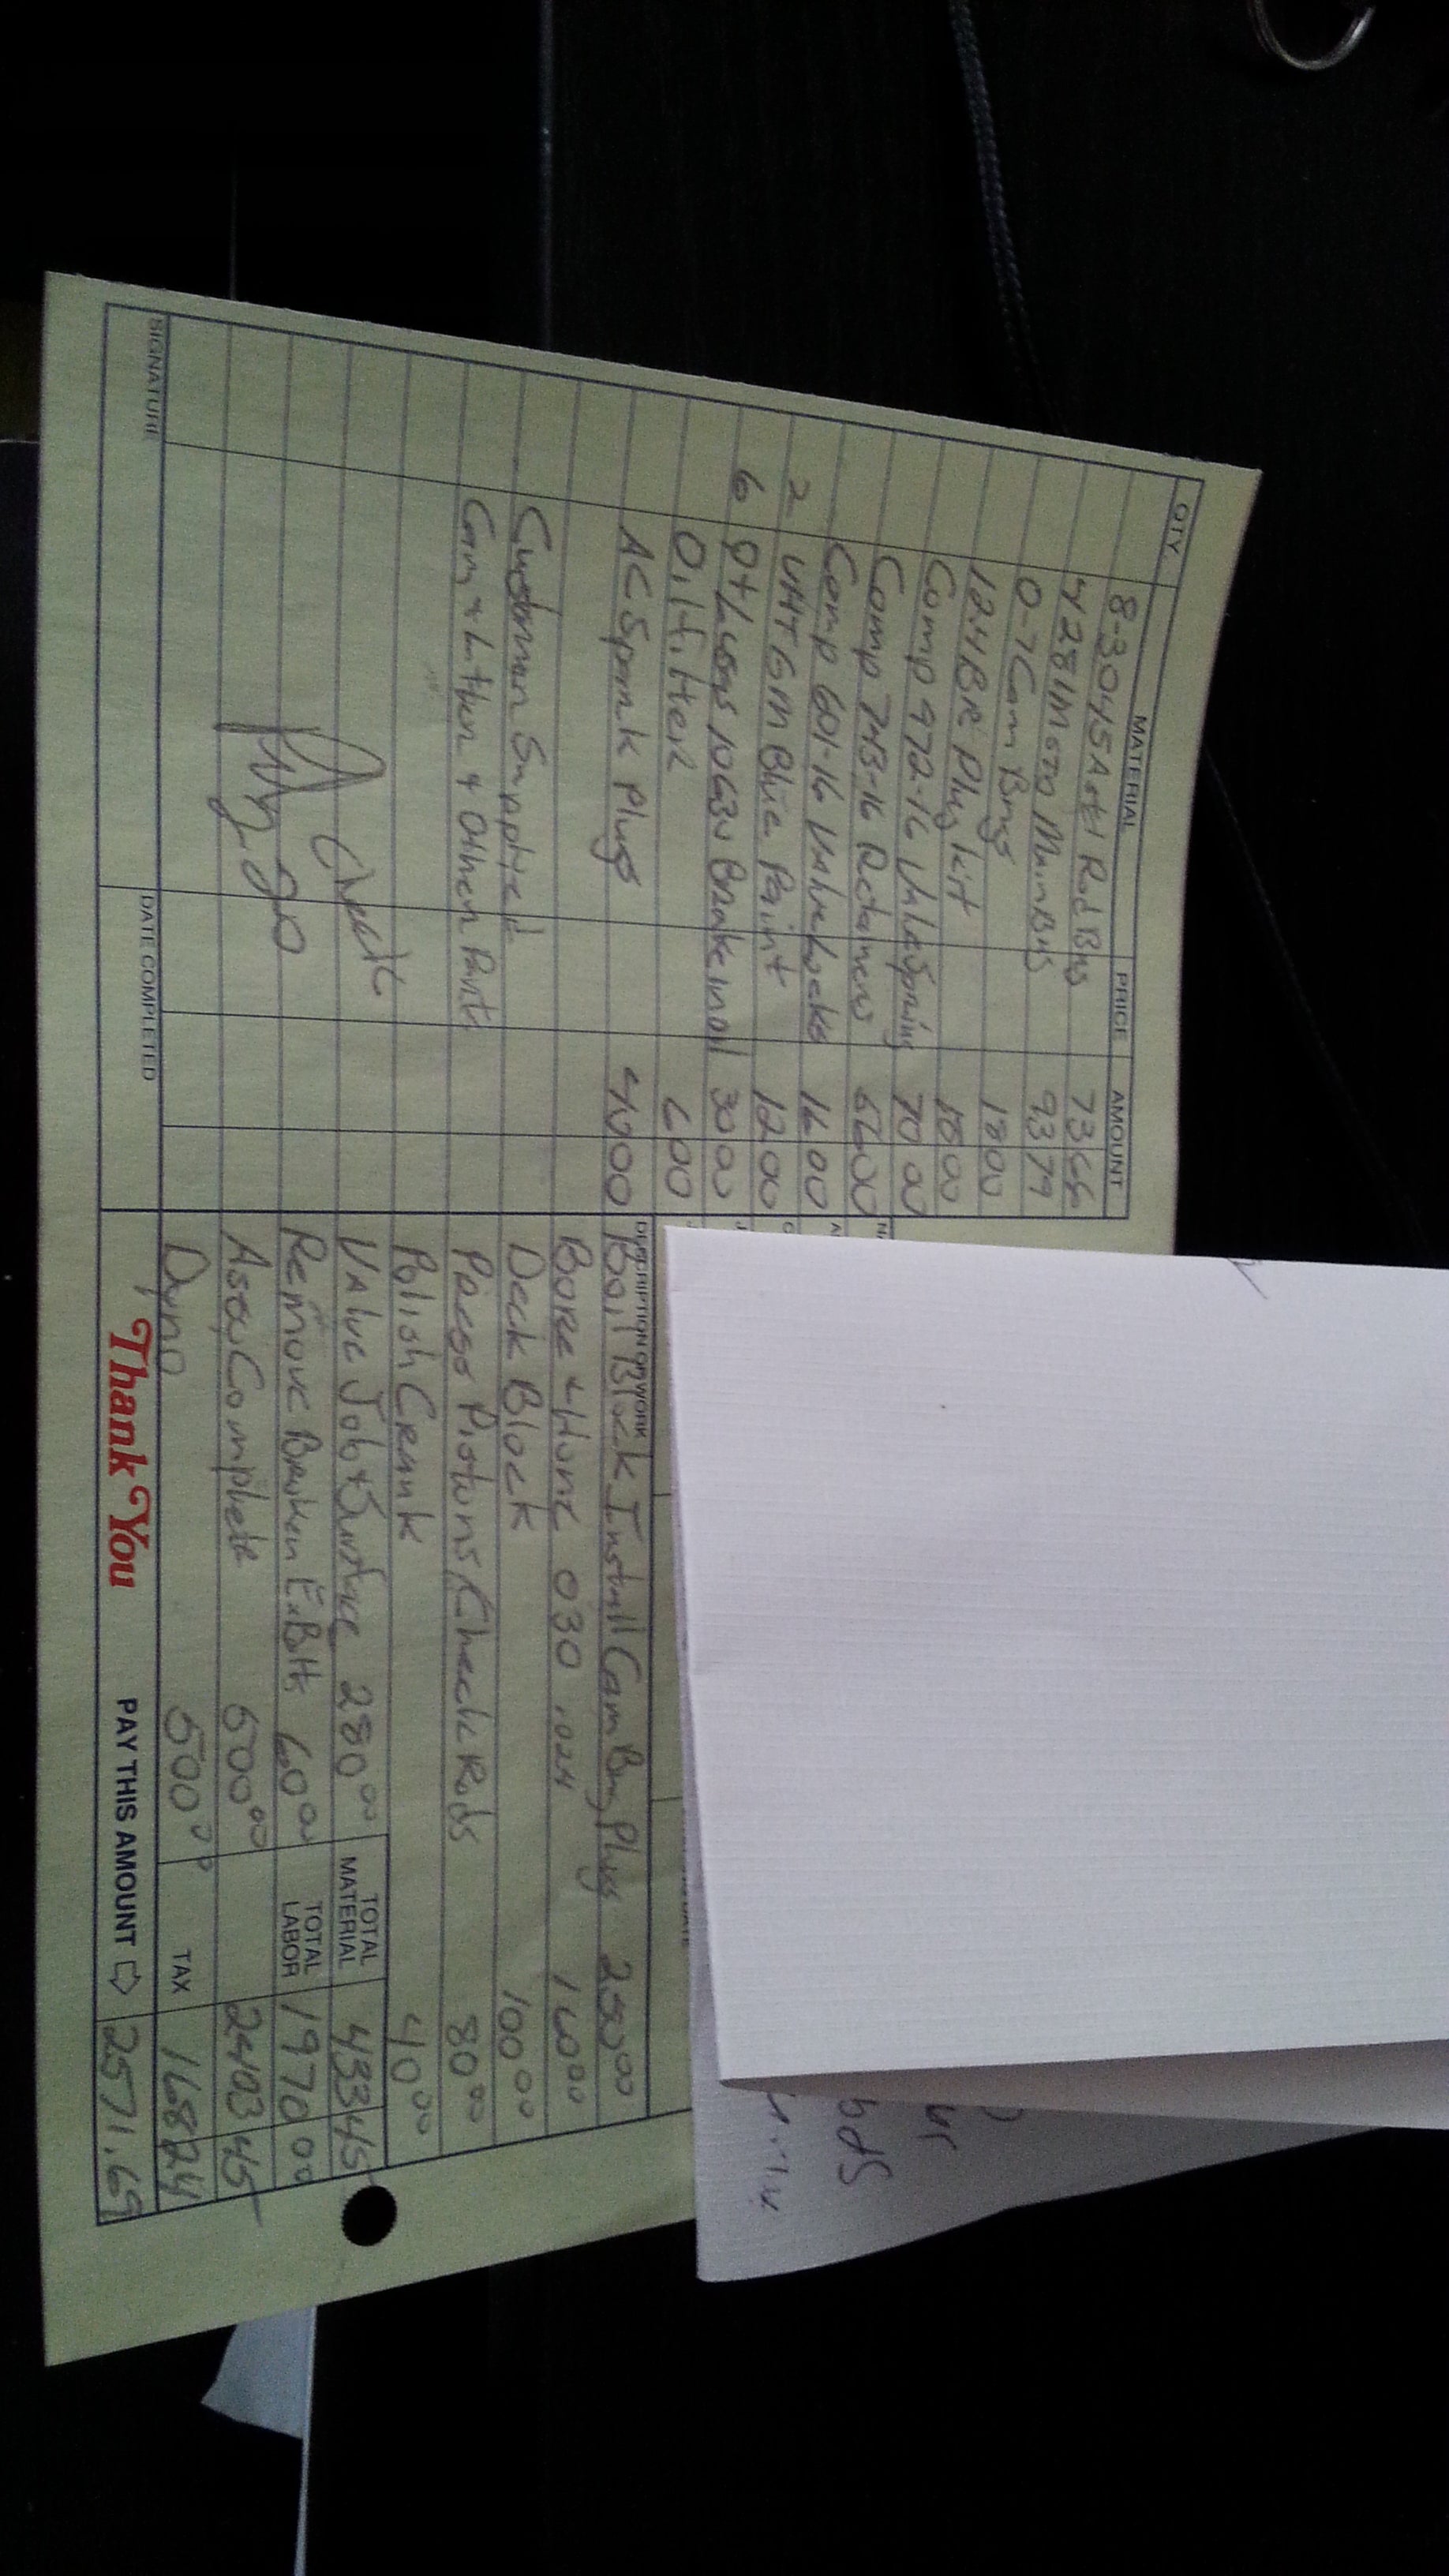 QTY MATERIAL PRICE AMOUNT
8-3045A Rod Brgs 73 66
4281M Main Brgs 93 79
0-7 Cam Brngs 18 00
Plug Kit 18 00
Comp 972-16 Valve Springs 70 00
Comp 743-16 Retainers 56 00
Comp 601-16 Valve Locks 16 00
2 GM Blue Paint 12 00
6 Qt 10 30 Brake in oil 30 00
Oil filter 6 00
AC Spark Plugs 40 00
Customer Supplied
Cam & Lifters & Other Parts
Check
SIGNATURE DATE COMPLETED
DESCRIPTION OF WORK
Boil Block Install Cam Brg Plugs 250 00
Bore & Hone 030 160 00
Deck Block 100 00
Press Pistons, Check Rods 80 00
Polish Crank 40 00
Valve Job & Surface 280 00 TOTAL MATERIAL 433 45
Remove Broken Ex Bolt 60 00 TOTAL LABOR 1970 00
Assy Complete 500 00 2403 45
Dyno 500 00 TAX 168 24
Thank You PAY THIS AMOUNT 2571.69